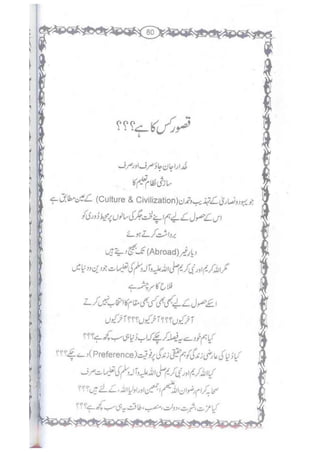 60
قصور کس کا ہے؟؟؟
خدارا جان جاؤ صرف اور صرف
سازشی نظام تعلیم کا
جو یہود و نصاریٰ کے تہذیب و تمدن (Culture & Civilization) کے عین مطابق ہے
اس کے حصول کے لیے ہم اپنے لخت جگر کی سالوں پر محیط دُوری کو
برداشت کرتے ہوئے
دیارِ غیر (Abroad) تک بھیج دیتے ہیں
مگر اللہ کریم اور نبی کریم صلی اللہ علیہ وآلہ وسلم کی تعلیمات جو دین و دنیا میں
فلاح کا سرچشمہ ہے
اسکے حصول کے لیے کبھی بھی کسی بھی مقام کا انتخاب نہیں کرتے
آخر کیوں؟؟؟ آخر کیوں؟؟؟ آخر کیوں
کیا ہم خود سے یہ فیصلہ کر چکے کہ اب دُنیا ہی سب کچھ ہے؟؟؟
کیا دُنیا کی عارضی زندگی کو ہم حقیقی زندگی پر فوقیت (Preference) دے چکے؟؟؟
کیا اللہ کریم اور نبی کریم صلی اللہ علیہ وآلہ وسلم کی تعلیمات صرف
صحابہ کرام رضوان اللہ علیھم اجمعین اور اولیا اللہ کے لئے ہیں؟؟؟
کیا عزت، شہرت، دولت، منصب، طاقت ہی سب کچھ ہے؟؟؟